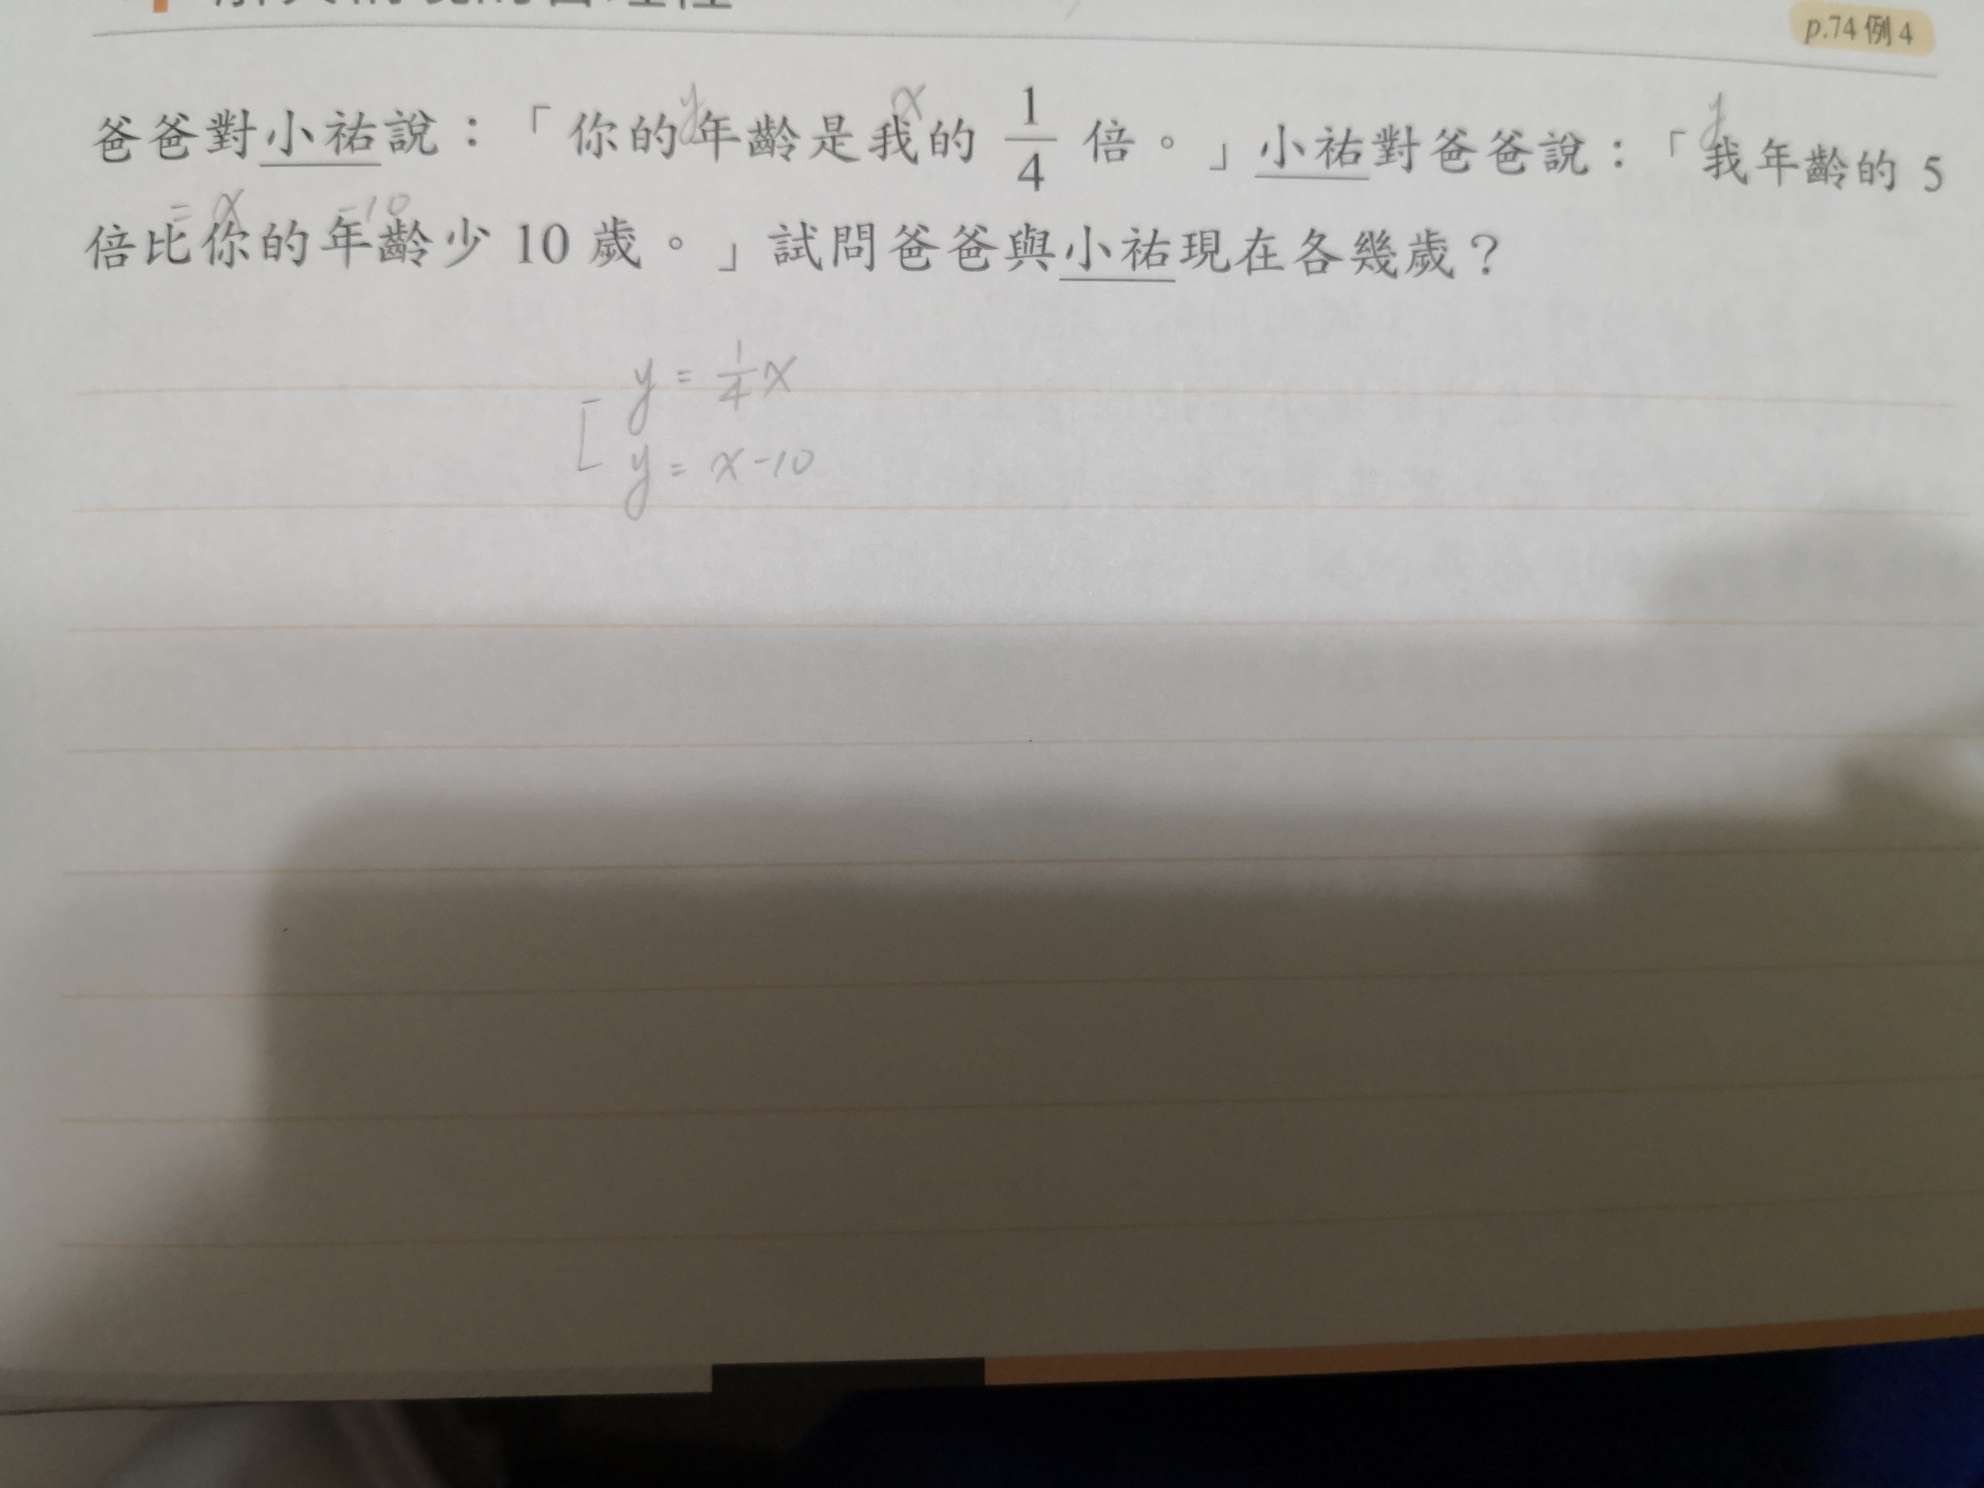 p.74 例 4
爸爸對小祐說：「你的年齡是我的 1/4 倍。」小祐對爸爸說：「我年齡的 5
y x y
= x -10
倍比你的年齡少 10 歲。」試問爸爸與小祐現在各幾歲？
y = 1/4 x
y = x - 10